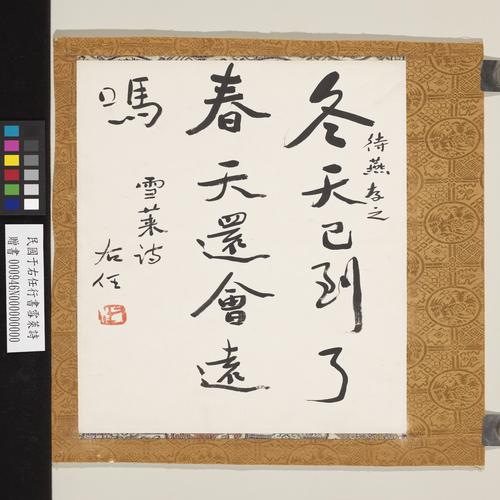 冬天已到了
春天還會遠
嗎
待燕存之
雪萊詩
右任
民國于右任行書雪萊詩
贈書 000946N000000000